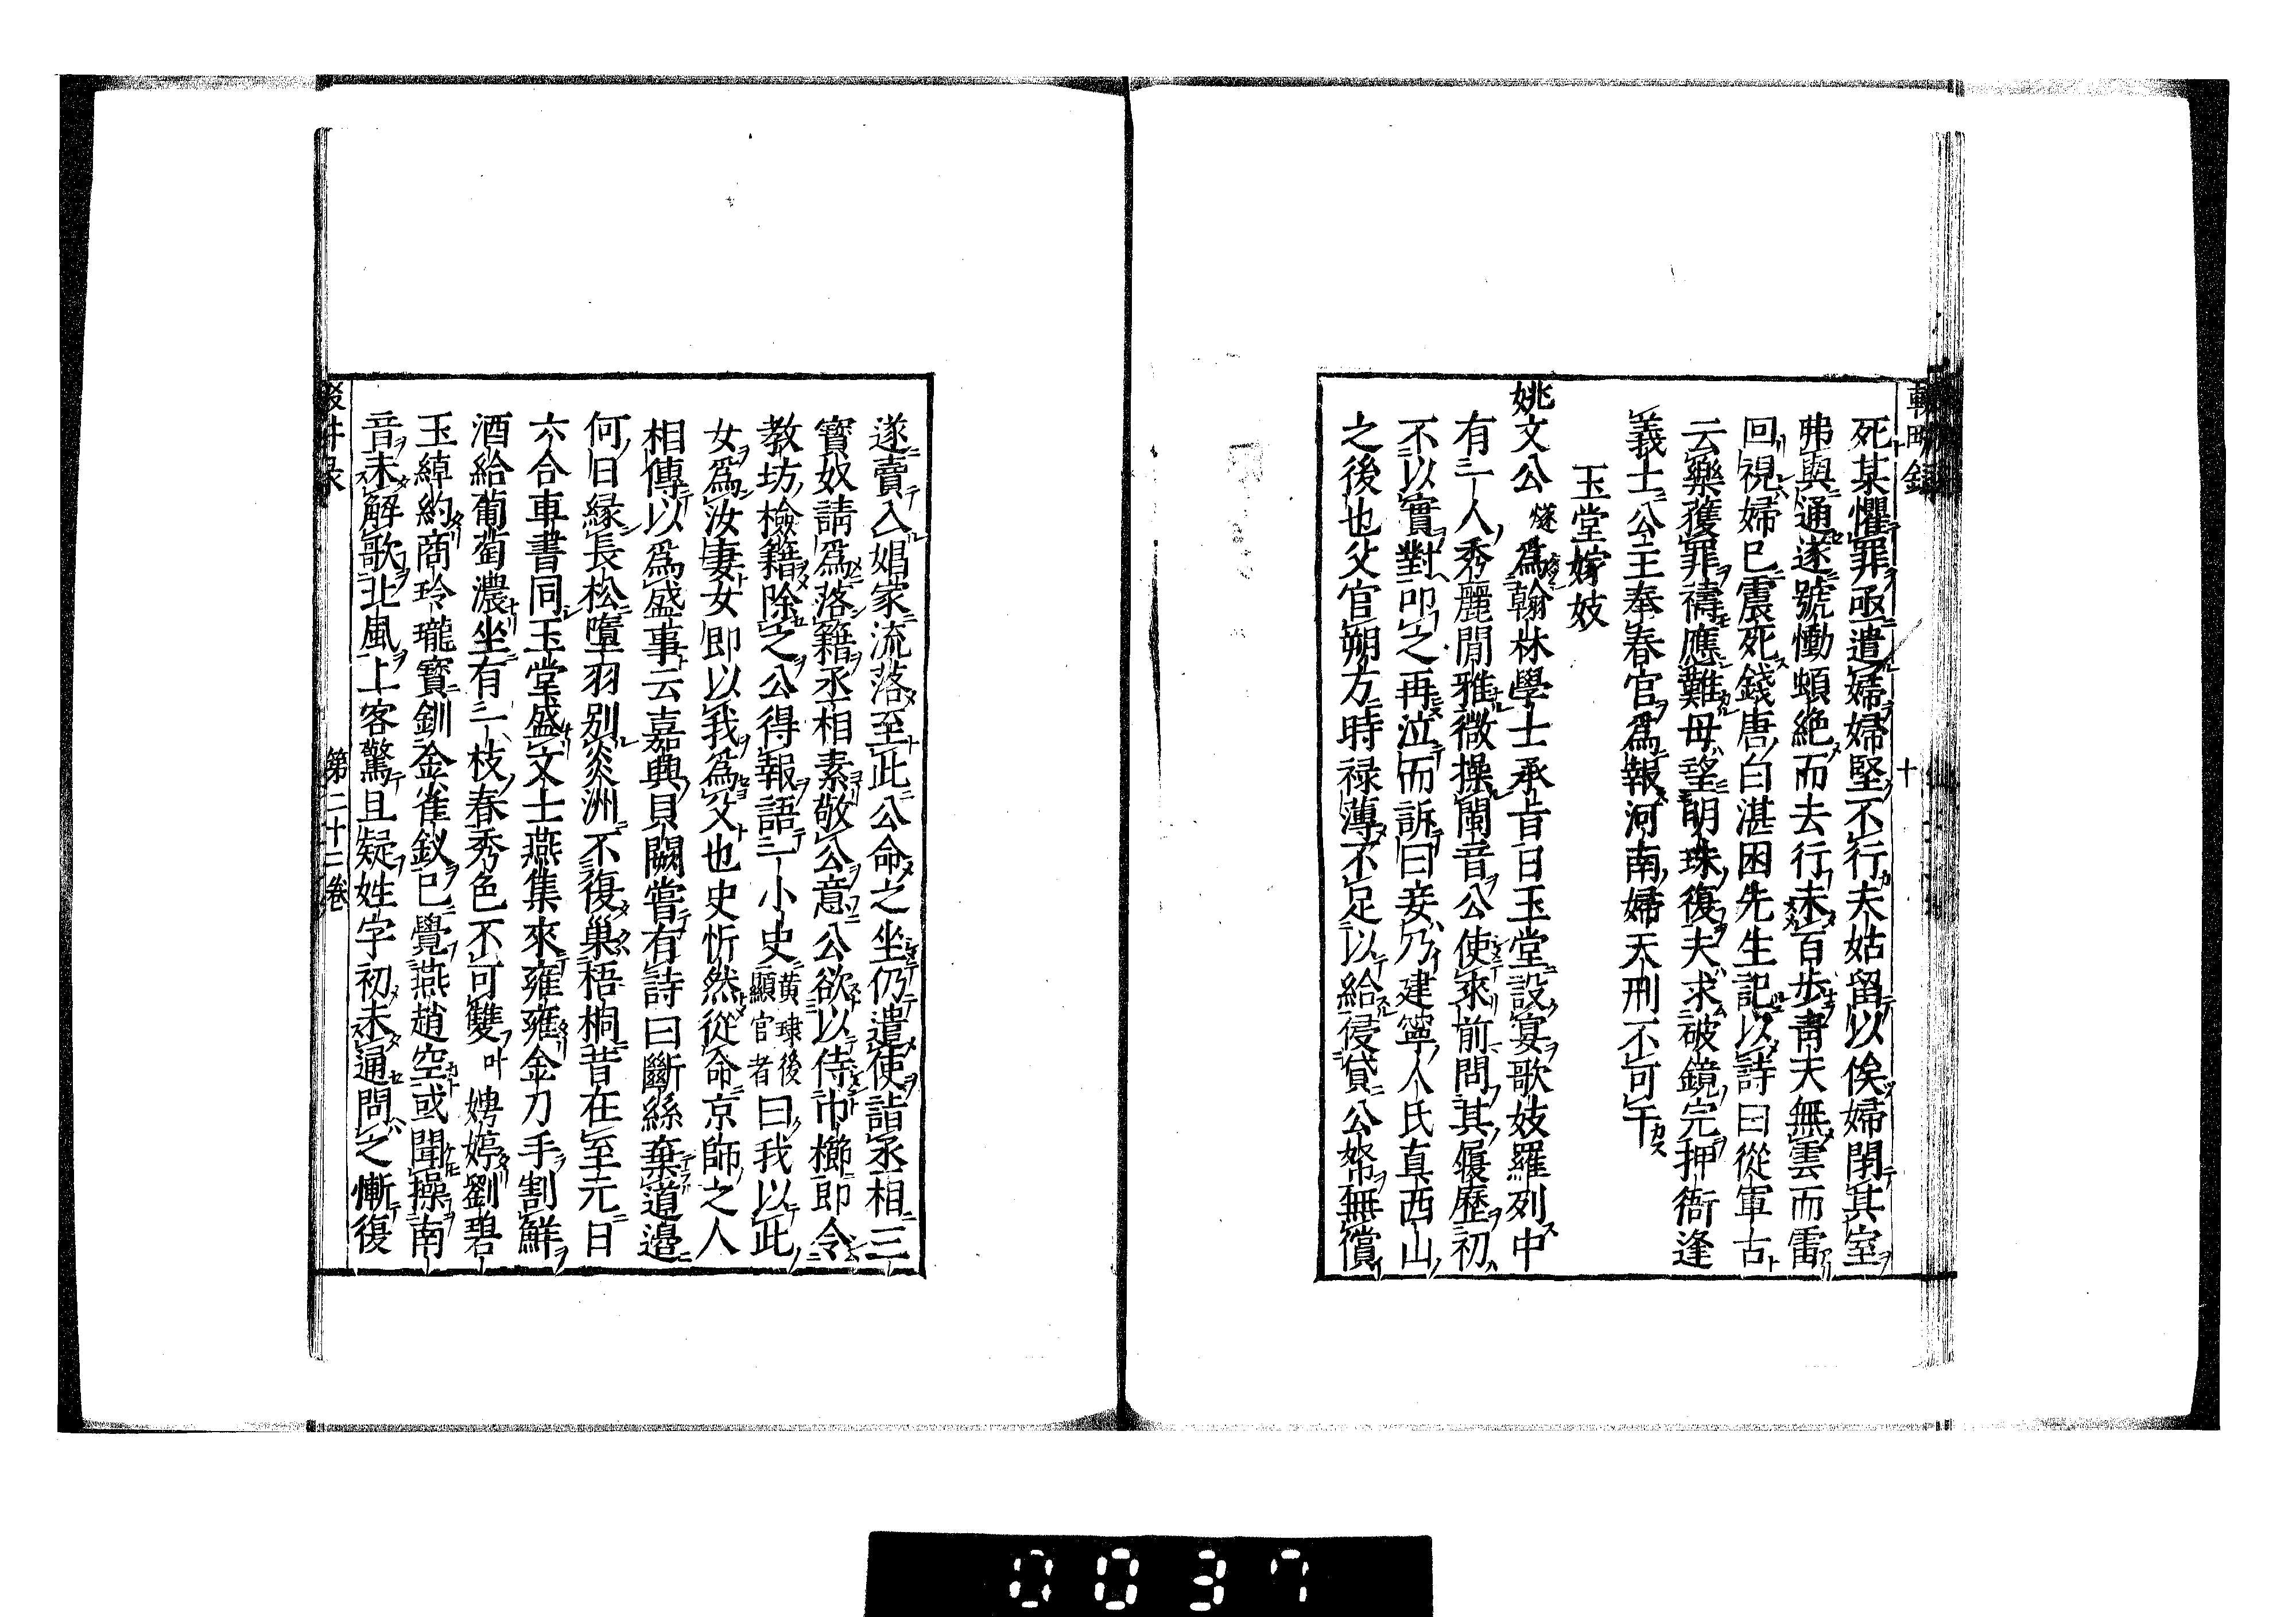 輟耕錄
十
死某懼罪亟遣婦婦堅不行夫姑留以俟婦閉其室
弗與通遂號慟頓絶而去行未百步青天無雲而雷
回視婦已震死錢唐白湛困先生記以詩曰從軍古
云樂獲罪禱應難母望明珠復夫求破鏡完押衙逢
義士公主奉春官爲報河南婦天刑不可干
玉堂嫁妓
姚文公燧爲翰林學士承旨日玉堂設宴歌妓羅列中
有一人秀麗閒雅微操閩音公使來前問其履歷初
不以實對叩之再泣而訴曰妾乃建寧人氏真西山
之後也父官朔方時禄薄不足以給侵貸公帑無償
遂賣入娼家流落至此公命之坐仍遣使詣丞相三
寶奴請爲落籍丞相素敬公意公欲以侍巾櫛即令
教坊檢籍除之公得報語一小史黄𤦺後顯官者曰我以此
女爲汝妻女即以我爲父也史忻然從命京師之人
相傳以爲盛事云嘉興貝闕嘗有詩曰斷絲棄道邉
何日縁長松墮羽别炎洲不復巢梧桐昔在至元日
六合車書同玉堂盛文士燕集來雍雍金刀手割鮮
酒給葡萄濃坐有一枝春秀色不可雙叶娉婷劉碧
玉綽約商玲瓏寳釧金雀釵已覺燕趙空或聞操南
音未解歌北風上客驚且疑姓字初未通問之慚復
輟耕录
第二十二卷
0037